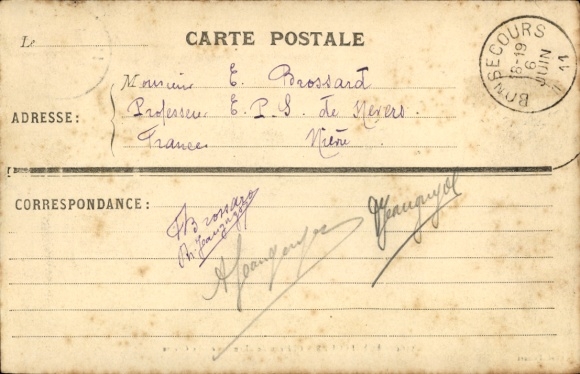 CARTE POSTALE
Le
BONSECOURS
18-19
6
JUIN
11
Monsieur E. Brossard
ADRESSE : Professeur E. P. S. de Nevers.
France Nièvre
CORRESPONDANCE :
Brossard